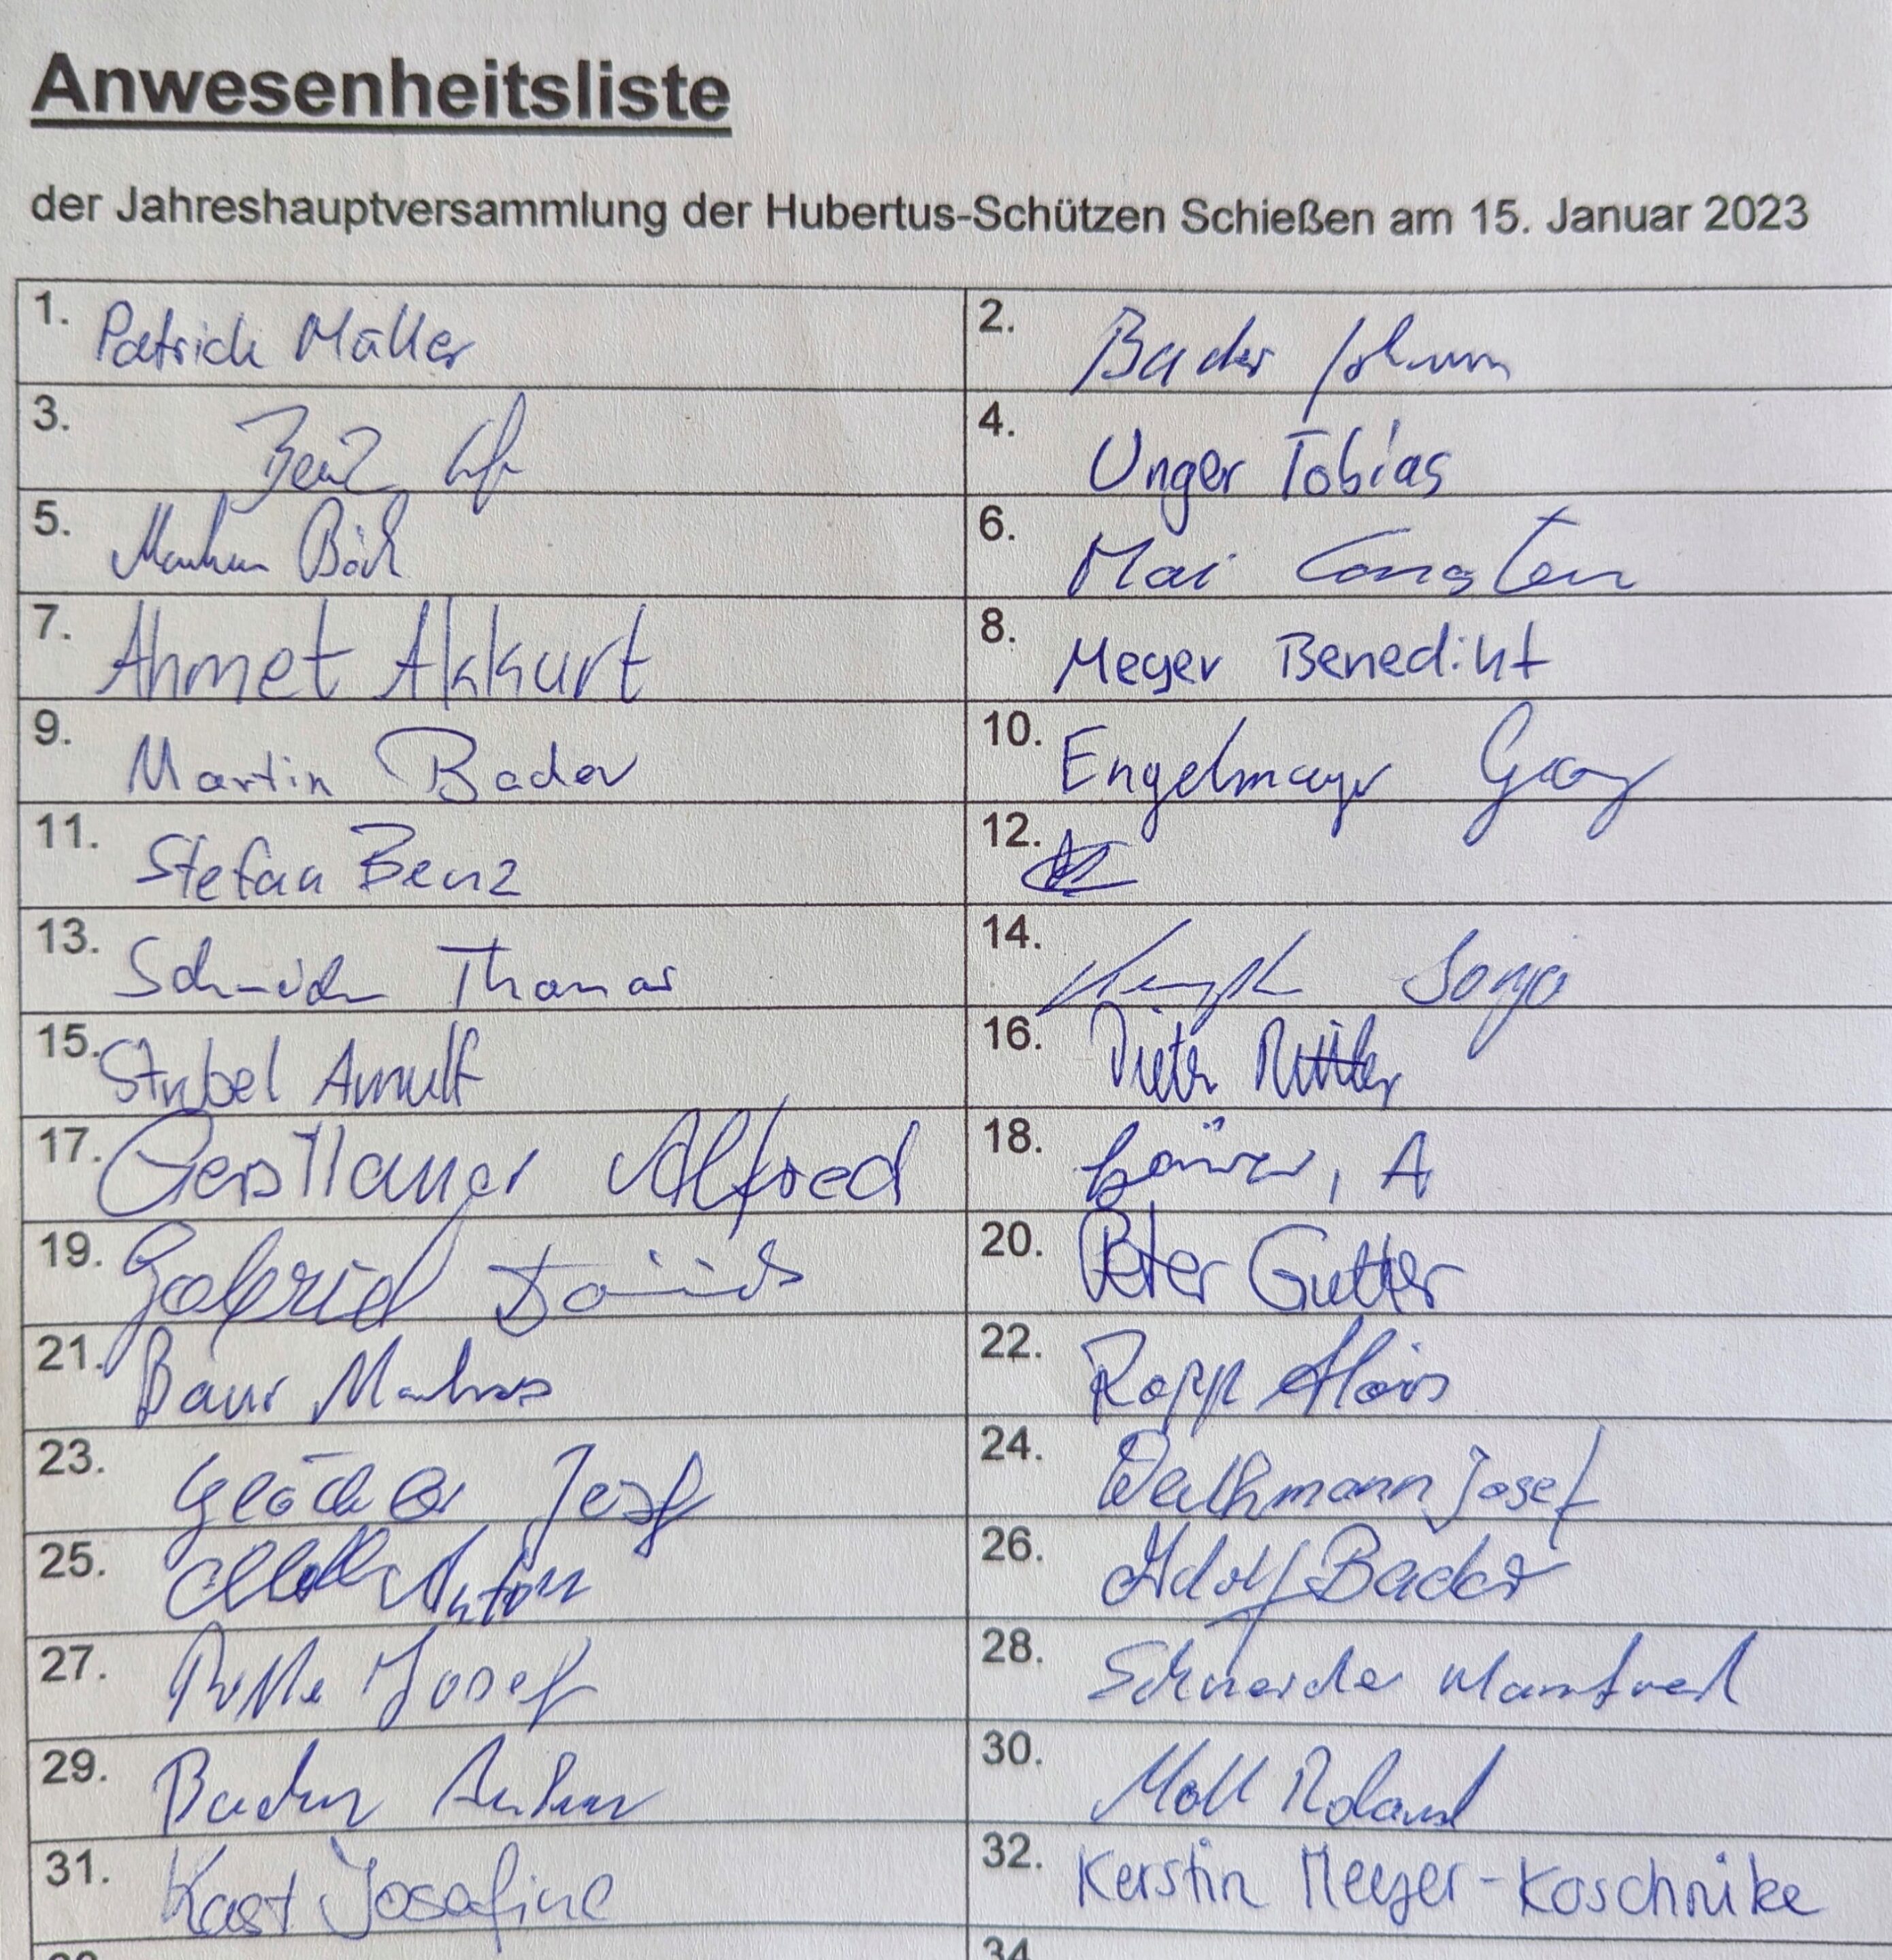 Anwesenheitsliste
der Jahreshauptversammlung der Hubertus-Schützen Schießen am 15. Januar 2023
1. Patrick Müller
2. Bader Johann
3. Benz
4. Unger Tobias
5. Markus Böck
6. Mai Carsten
7. Ahmet Akkurt
8. Meyer Benedikt
9. Martin Bader
10. Engelmayr Georg
11. Stefan Benz
12.
13. Schneider Thomas
14. Sonja
15. Strobel Arnulf
16. Dieter
17. Gerstlauer Alfred
18. A
19. Gabriel
20. Peter Gutter
21. Baur Markus
22. Rapp Alois
23. Glöckler Josef
24. Josef
25. Anton
26. Adolf Bader
27. Josef
28. Schneider Manfred
29. Bader
30. Moll Roland
31. Kast Josefine
32. Kerstin Meyer-Koschnike
34.